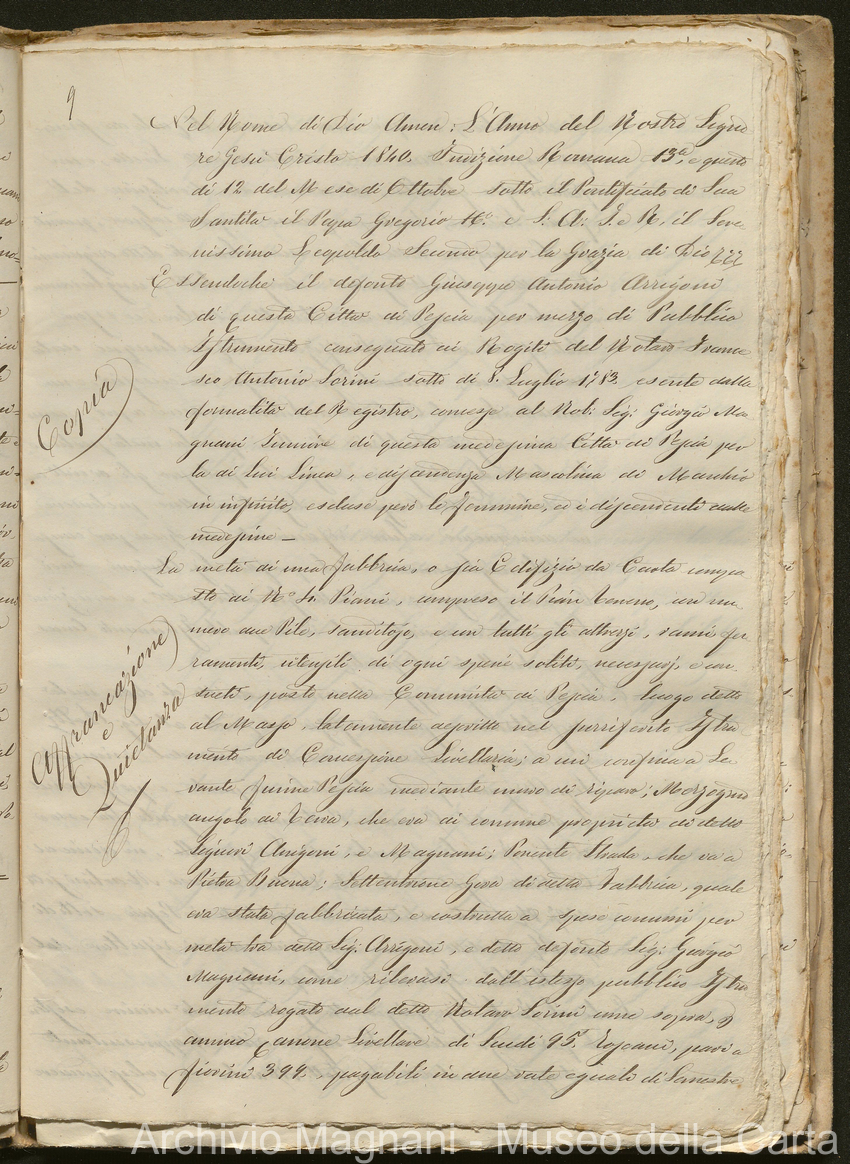 9
Nel Nome di Dio Amen: L'Anno del Nostro Signo
re Gesù Cristo 1840. Indizione Romana 13.ª e questo
dì 12 del Mese di Ottobre sotto il Pontificato di Sua
Santità il Papa Gregorio 16.º e S: A: I. e R. il Sere-
nissimo Leopoldo Secondo per la Grazia di Dio
Essendoche il defonto Giuseppe Antonio Arrigoni
di questa Città di Pescia per mezzo di Pubblico
Istrumento consegnato ai Rogiti del Notaro France
sco Antonio Sorini sotto dì 8. Luglio 1783. esente dalla
formalità del Registro, concesse al Nob: Sig: Giorgio Ma
gnani Juniore di questa medesima Città di Pescia per
la di Lui Linea, e discendenza Mascolina di Maschio
in infinito, escluse però le femmine, ed i discendenti dalle
medesime —
Copia
La metà di una Fabbrica, o sia Edifizio da Carta compo
sto di N.º 4. Piani, compreso il Pian Terreno, con nu-
mero due Pile, e con tutti gli attrezzi, rami, fer
ramenti, utensili di ogni specie soliti, necessarj, e con-
sueti, posto nella Comunità di Pescia, luogo detto
al Masso, latamente descritto nel surriferito Istru
mento di Concessione Livellaria; a cui confina a Le
vante Fiume Pescia mediante muro di riparo; Mezzogiorno
angolo di Terra, che era di comune proprietà di detto
Signori Arrigoni, e Magnani; Ponente Strada, che va a
Pietra Buona; Settentrione Gora di detta Fabbrica, quale
era stata fabbricata, e costrutta a spese comuni per
metà tra detto Sig: Arrigoni, e detto defonto Sig: Giorgio
Magnani, come rilevasi dall'istesso pubblico Istru
mento rogato dal detto Notaro Sorini come sopra,
annuo Canone Livellare di Scudi 95. Toscani, pari a
fiorini 399. pagabili in due rate eguali di Semestre
Affrancazione
e
Quietanza
Archivio Magnani - Museo della Carta